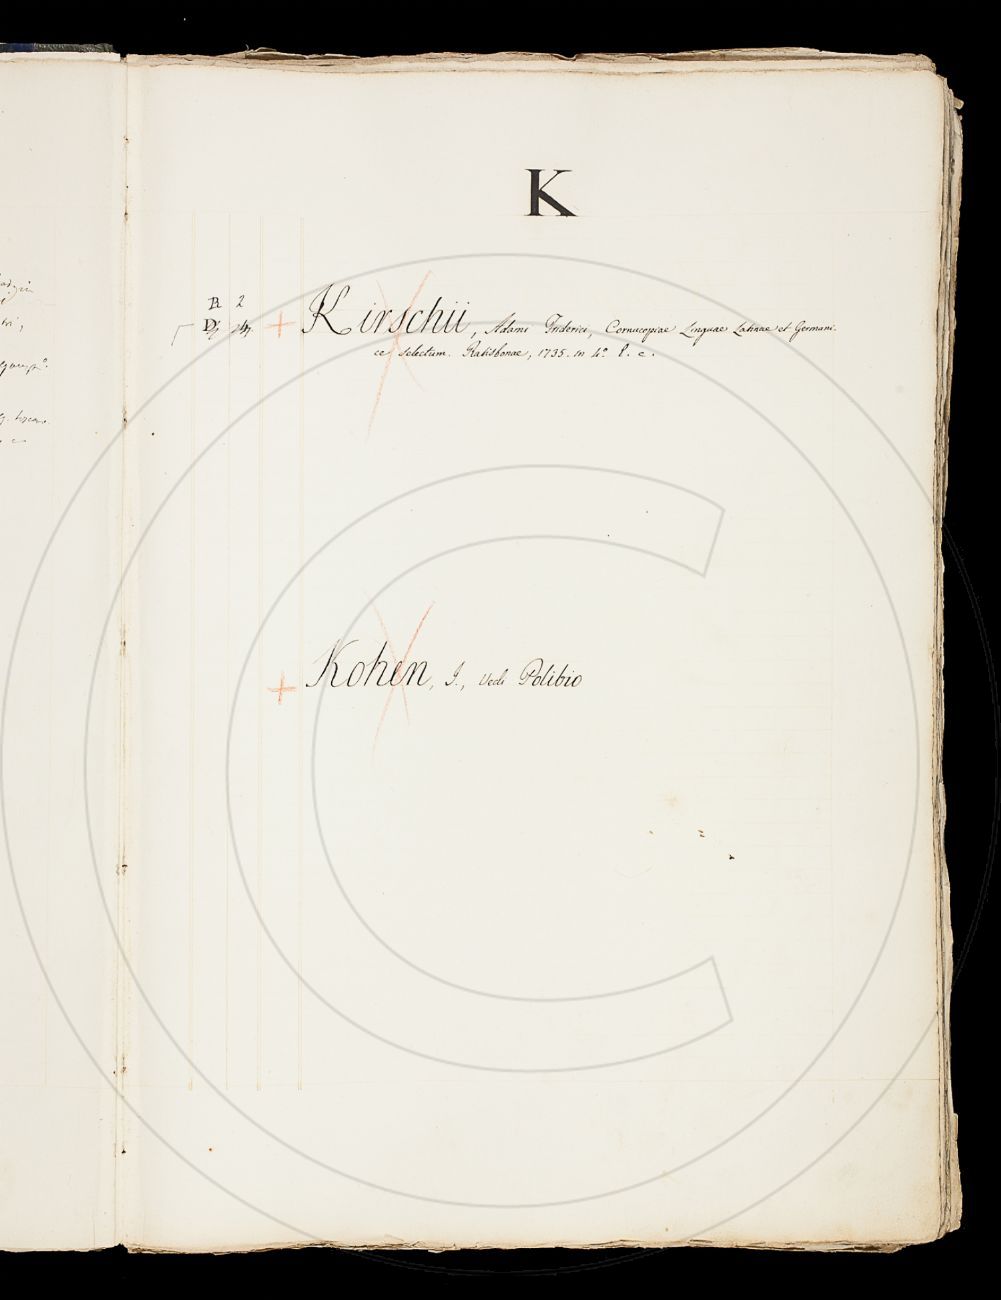 K
R 2
Kirschii, Adami Friderici, Cornucopiae Linguae Latinae et Germani-
ce selectum. Ratisbonae, 1735. in 4.º l. c.
Kohen, I., vedi Polibio